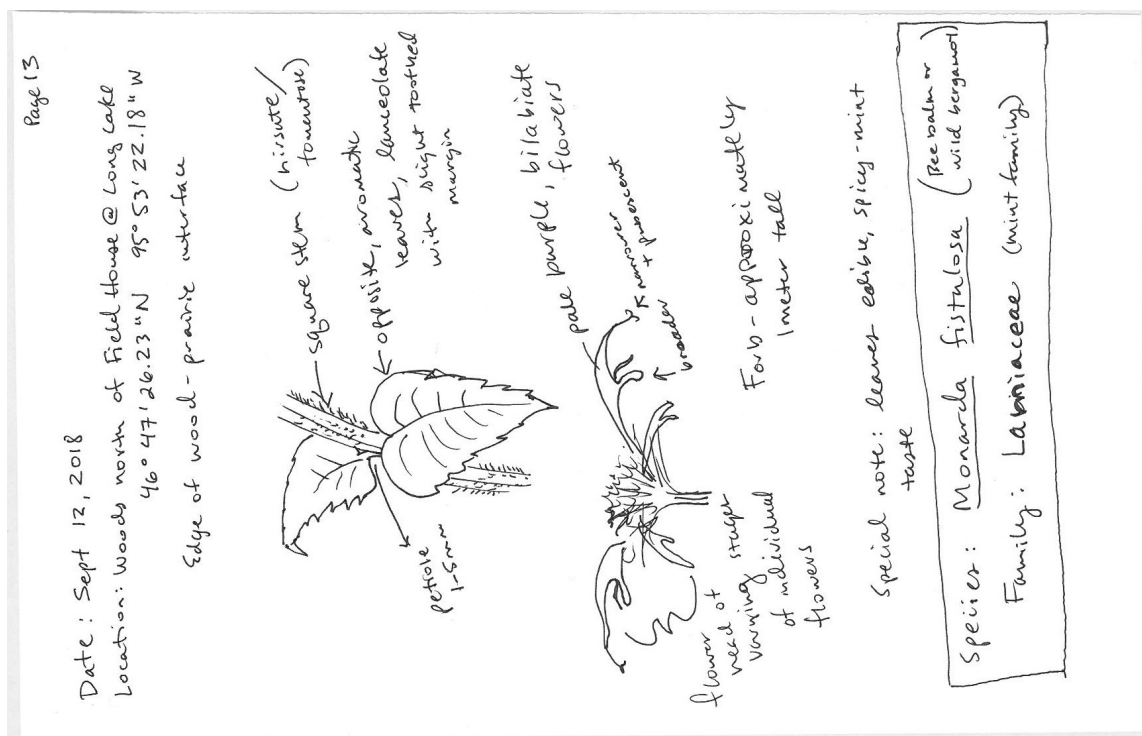 Page 13
Date: Sept 12, 2018
Location: Woods north of Field House @ Long Lake
46° 47' 26.23"N 95° 53' 22.18"W
Edge of wood-prairie interface
square stem (hirsute/
tomentose)
opposite, aromatic
leaves, lanceolate
with slight toothed
margin
petiole
1-5mm
pale purple, bilabiate
flowers
narrower
+ pubescent
broader
flower
head of
varying stages
of individual
flowers
Forb - approximately
1 meter tall
Special note: leaves edible, spicy-mint
taste
Species: Monarda fistulosa (Bee balm or
wild bergamot)
Family: Lamiaceae (mint family)